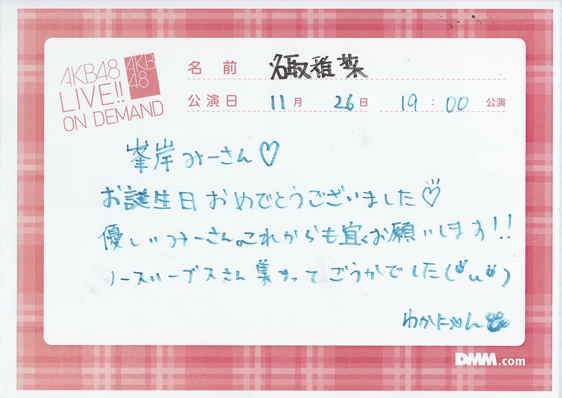 AKB48
LIVE!!
ON DEMAND
AKB
48
名前 名取稚菜
公演日 11月 26日 19:00 公演
峯岸みーさん♡
お誕生日おめでとうございました♡
優しいみーさん。これからも宜くお願いします!!
ノースリーブスさん集まってごうかでした(
わかにゃん
DMM.com